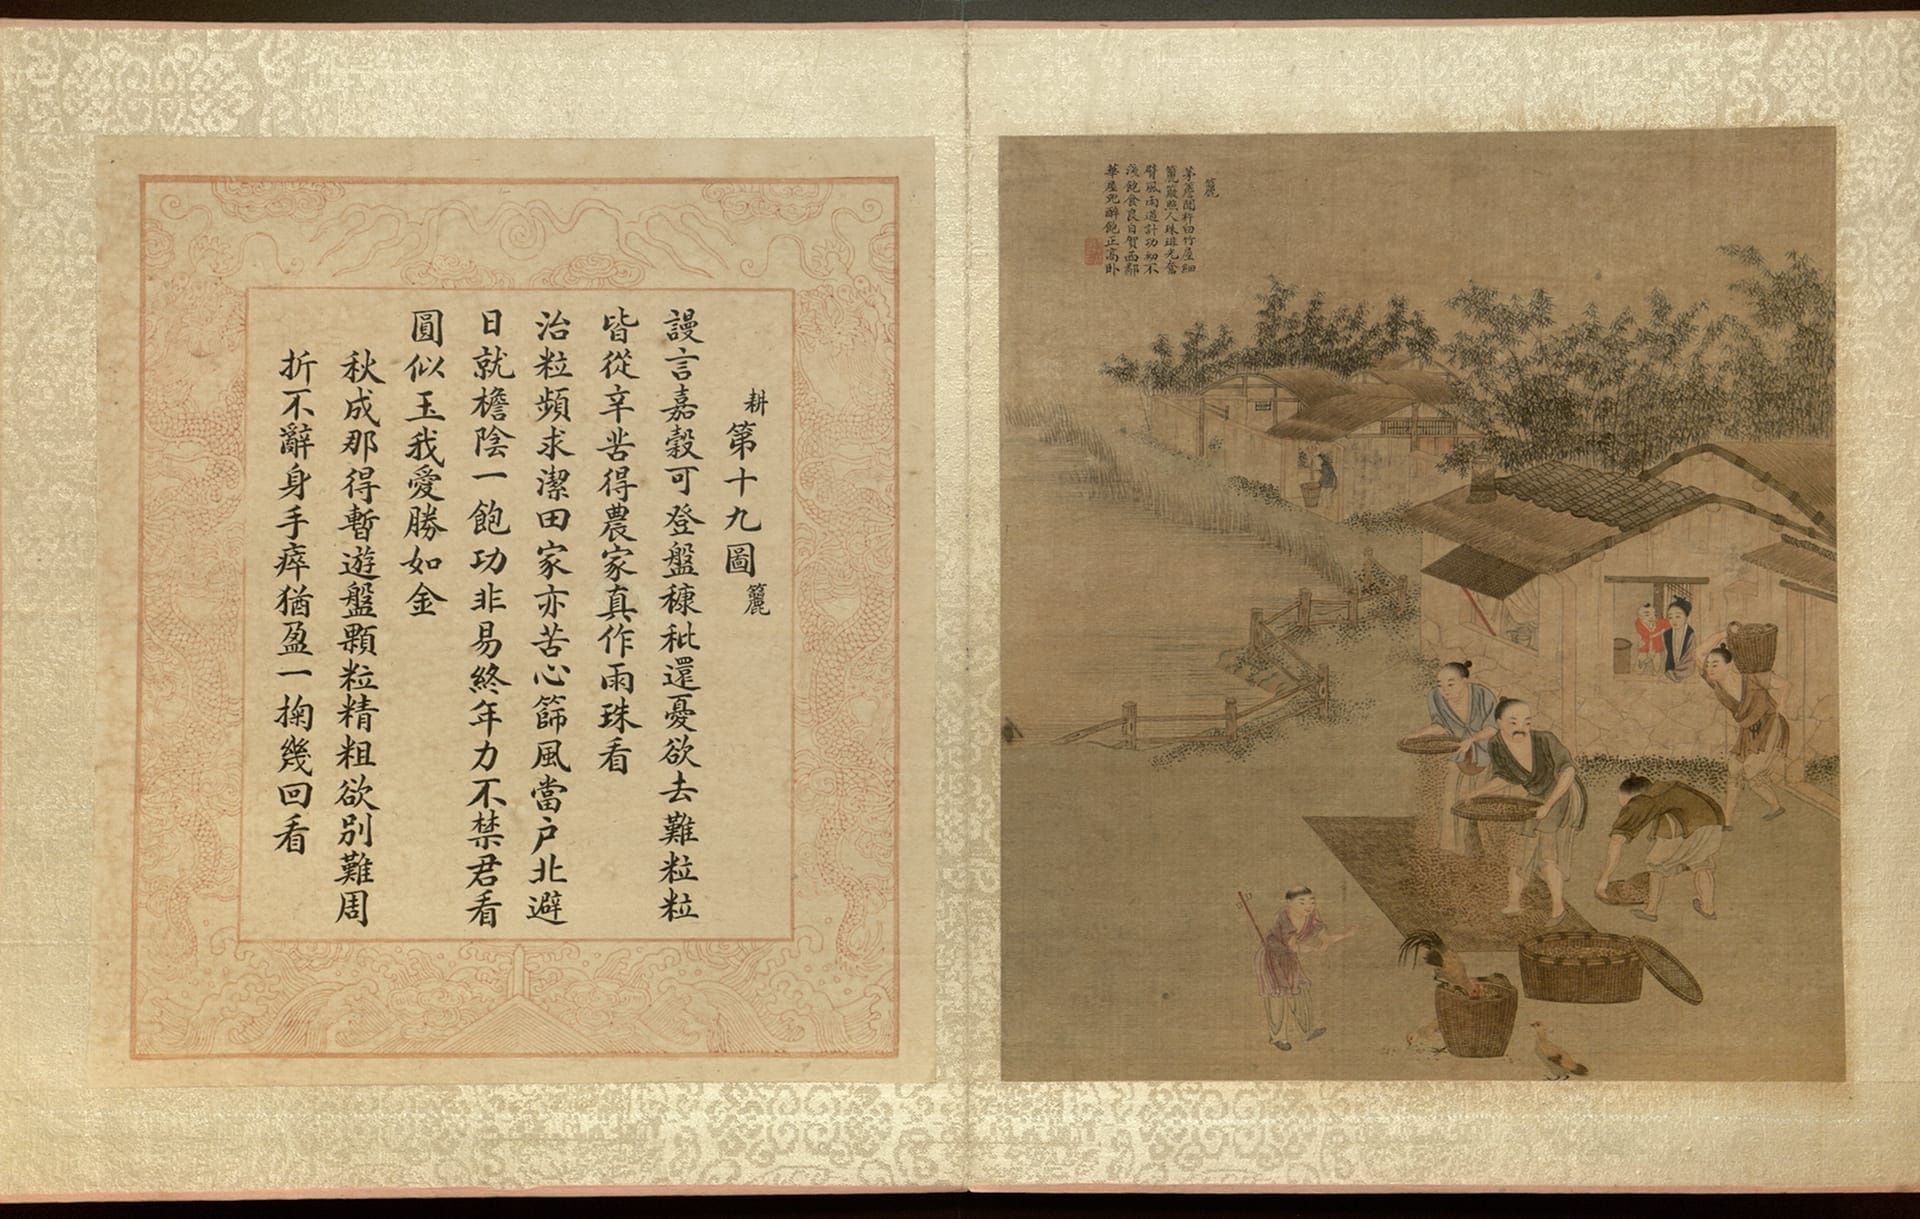 籭
茅簷閒杵臼竹屋細
籭簸照人珠琲光奮
臂風雨過計功初不
淺飽食良自賀西鄰
華屋兒醉飽正高卧
耕第十九圖籭
謾言嘉穀可登盤糠秕還憂欲去難粒粒
皆從辛苦得農家真作雨珠看
治粒頻求潔田家亦苦心篩風當户北避
日就檐陰一飽功非易終年力不禁君看
圓似玉我愛勝如金
秋成那得暫遊盤顆粒精粗欲別難周
折不辭身手瘁猶盈一掬幾回看